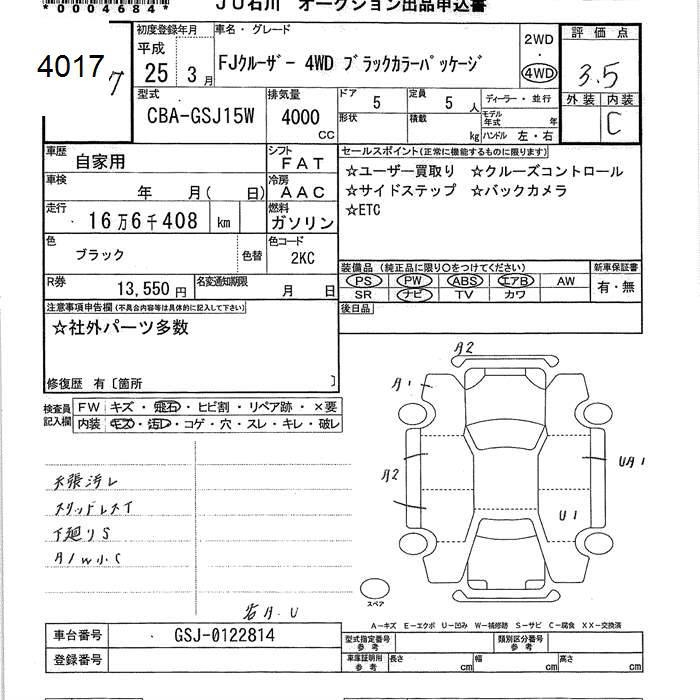 *0004684*
JU石川 オークション出品申込書
4017
7
初度登録年月
平成
25 3月
車名・グレード
FJクルーザー 4WD ブラックカラーパッケージ
2WD
・
4WD
評価点
3.5
外装 内装
C
型式
CBA-GSJ15W
排気量
4000
cc
ドア 5
定員 5 人
形状
積載 kg
ディーラー・並行
モデル年式 年
ハンドル 左・右
車歴 自家用
シフト FAT
車検 年 月( 日)
冷房 AAC
走行 16万6千408 km
燃料 ガソリン
色 ブラック 色替
色コード 2KC
R券 13,550円
名変通知期限 月 日
セールスポイント(正常に機能するものに限ります)
☆ユーザー買取り ☆クルーズコントロール
☆サイドステップ ☆バックカメラ
☆ETC
装備品(純正品に限り○をつけてください)
新車保証書
PS PW ABS エアB AW
SR ナビ TV カワ
有・無
後日品
注意事項申告欄(不具合内容等は具体的に記入して下さい)
☆社外パーツ多数
修復歴 有〔箇所 〕
検査員記入欄
FW キズ・飛石・ヒビ割・リペア跡・×要
内装 キズ・汚レ・コゲ・穴・スレ・キレ・破レ
天張汚レ
スタッドレスT
下廻りS
A/W小C
A2
A1
A2
UA1
U1
スペア
A-キズ E-エクボ U-凹み W-補修跡 S-サビ C-腐食 XX-交換済
車台番号 GSJ-0122814
登録番号
型式指定番号参考
類別区分番号参考
車庫証明用参考 長さ cm 幅 cm 高さ cm